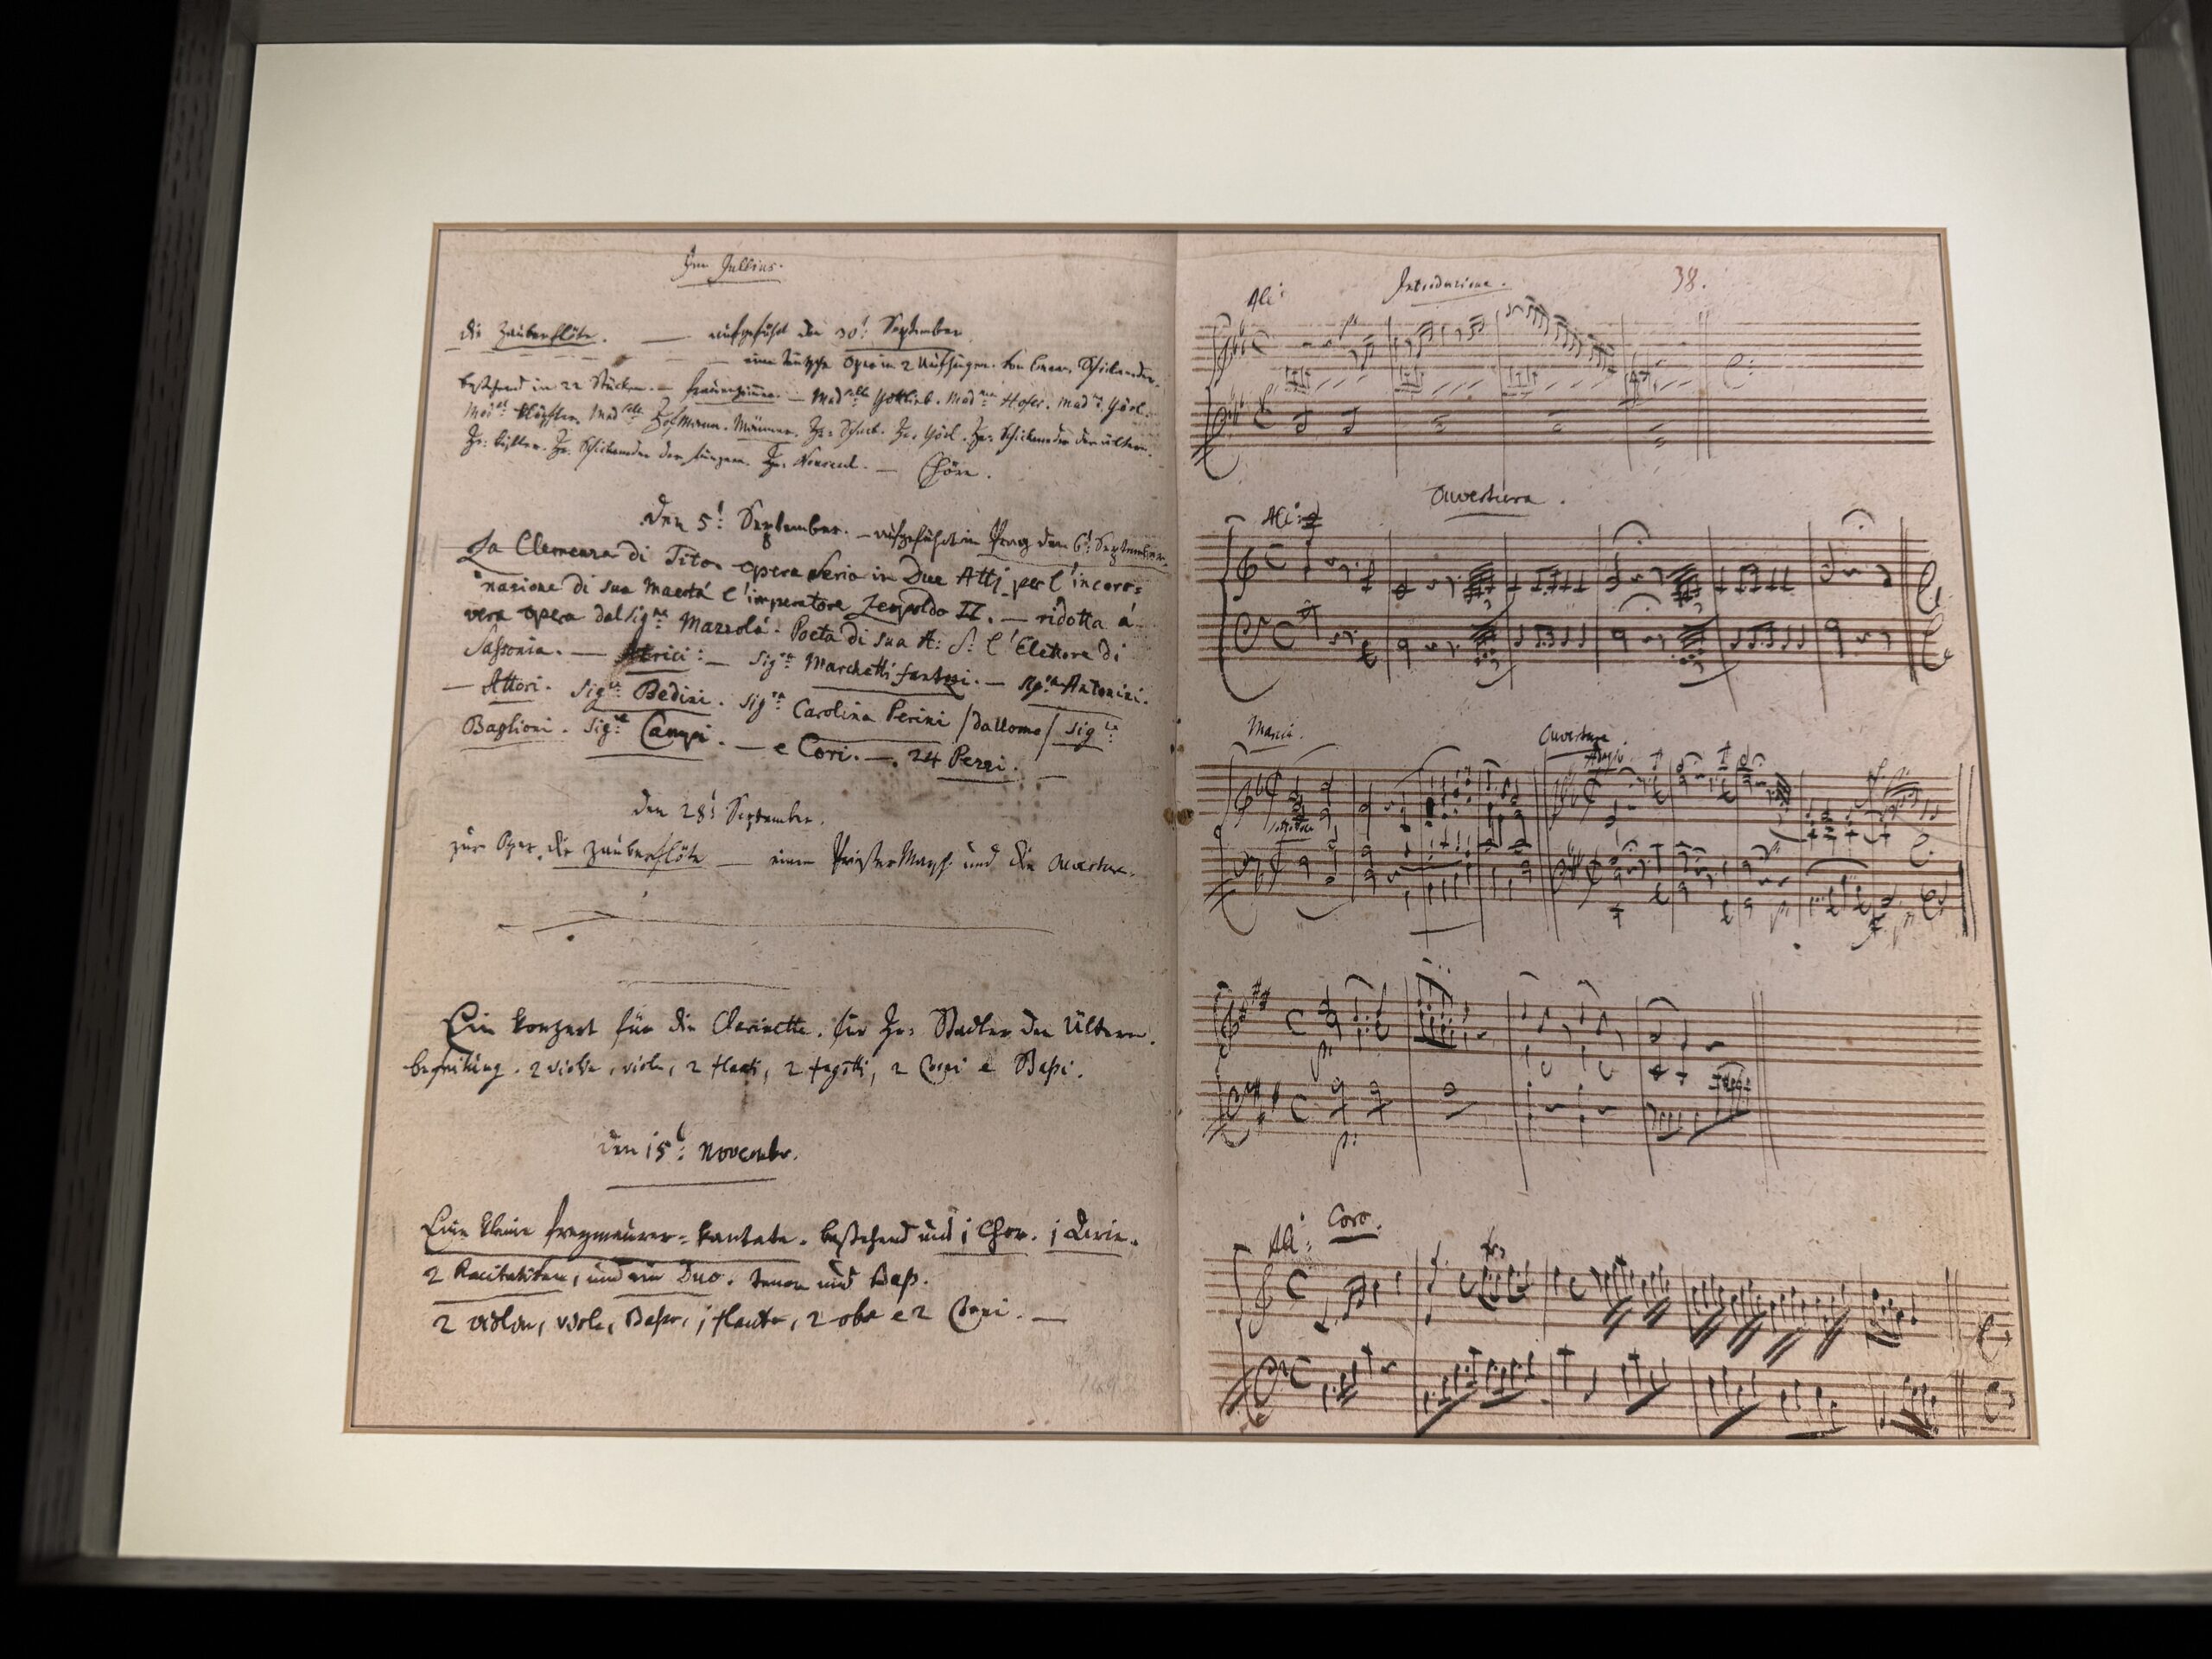 Im Jullius.
die Zauberflöte. — aufgeführt den 30t September.
— eine teutsche Oper in 2 Aufzügen. von Eman. Schickaneder.
bestehend in 22 Stücken. — Frauenzimmer. — Mad:selle Gottlieb. Mad:me Hofer. Mad:me Görl.
Mad:me Klöpfler. Mad:selle Hofmann. Männer. Hr: Schack. Hr: Görl. Hr: Schickaneder der ältere.
Hr: Kistler. Hr: Schickaneder der jüngere. Hr: Nouseul. — Chöre.
Den 5t September. — aufgeführt in Prag den 6t: September.
La Clemenza di Tito. opera Seria in Due Atti. per l'incoro=
nazione di sua Maestá l'imperatore Leopoldo II. — ridotta á
vera opera dal Sig:re Mazzolá. Poeta di sua A: S: l'Elettore di
Sassonia. — Atrici: — Sig:ra Marchetti fantozi. — Sig:ra Antonini.
— Attori. Sig:re Bedini. Sig:ra Carolina Perini /da Uomo/ Sig:re
Baglioni. Sig:re Campi. — e Cori. — 24 Pezzi. —
den 28t September.
zur Oper. die Zauberflöte — einen Priester Marsch und die Ouverture.
Ein konzert für die Clarinette. für Hr: Stadler den Ältern.
begleitung. 2 violini, viole, 2 flauti, 2 fagotti, 2 Corni e Baßi.
den 15t: Novembr.
Eine kleine freymaurer=kantate. bestehend aus 1 Chor. 1 Arie.
2 Recitativen, und ein Duo. tenor und Baß.
2 violini, viola, Basso, 1 flauto, 2 oboe e 2 Corni. —
38.
All:o Introduzione.
Ouvertura.
All:o
Marcia. Ouverture.
Adagio
sotto voce
p
p:
Coro.
All:o
tr